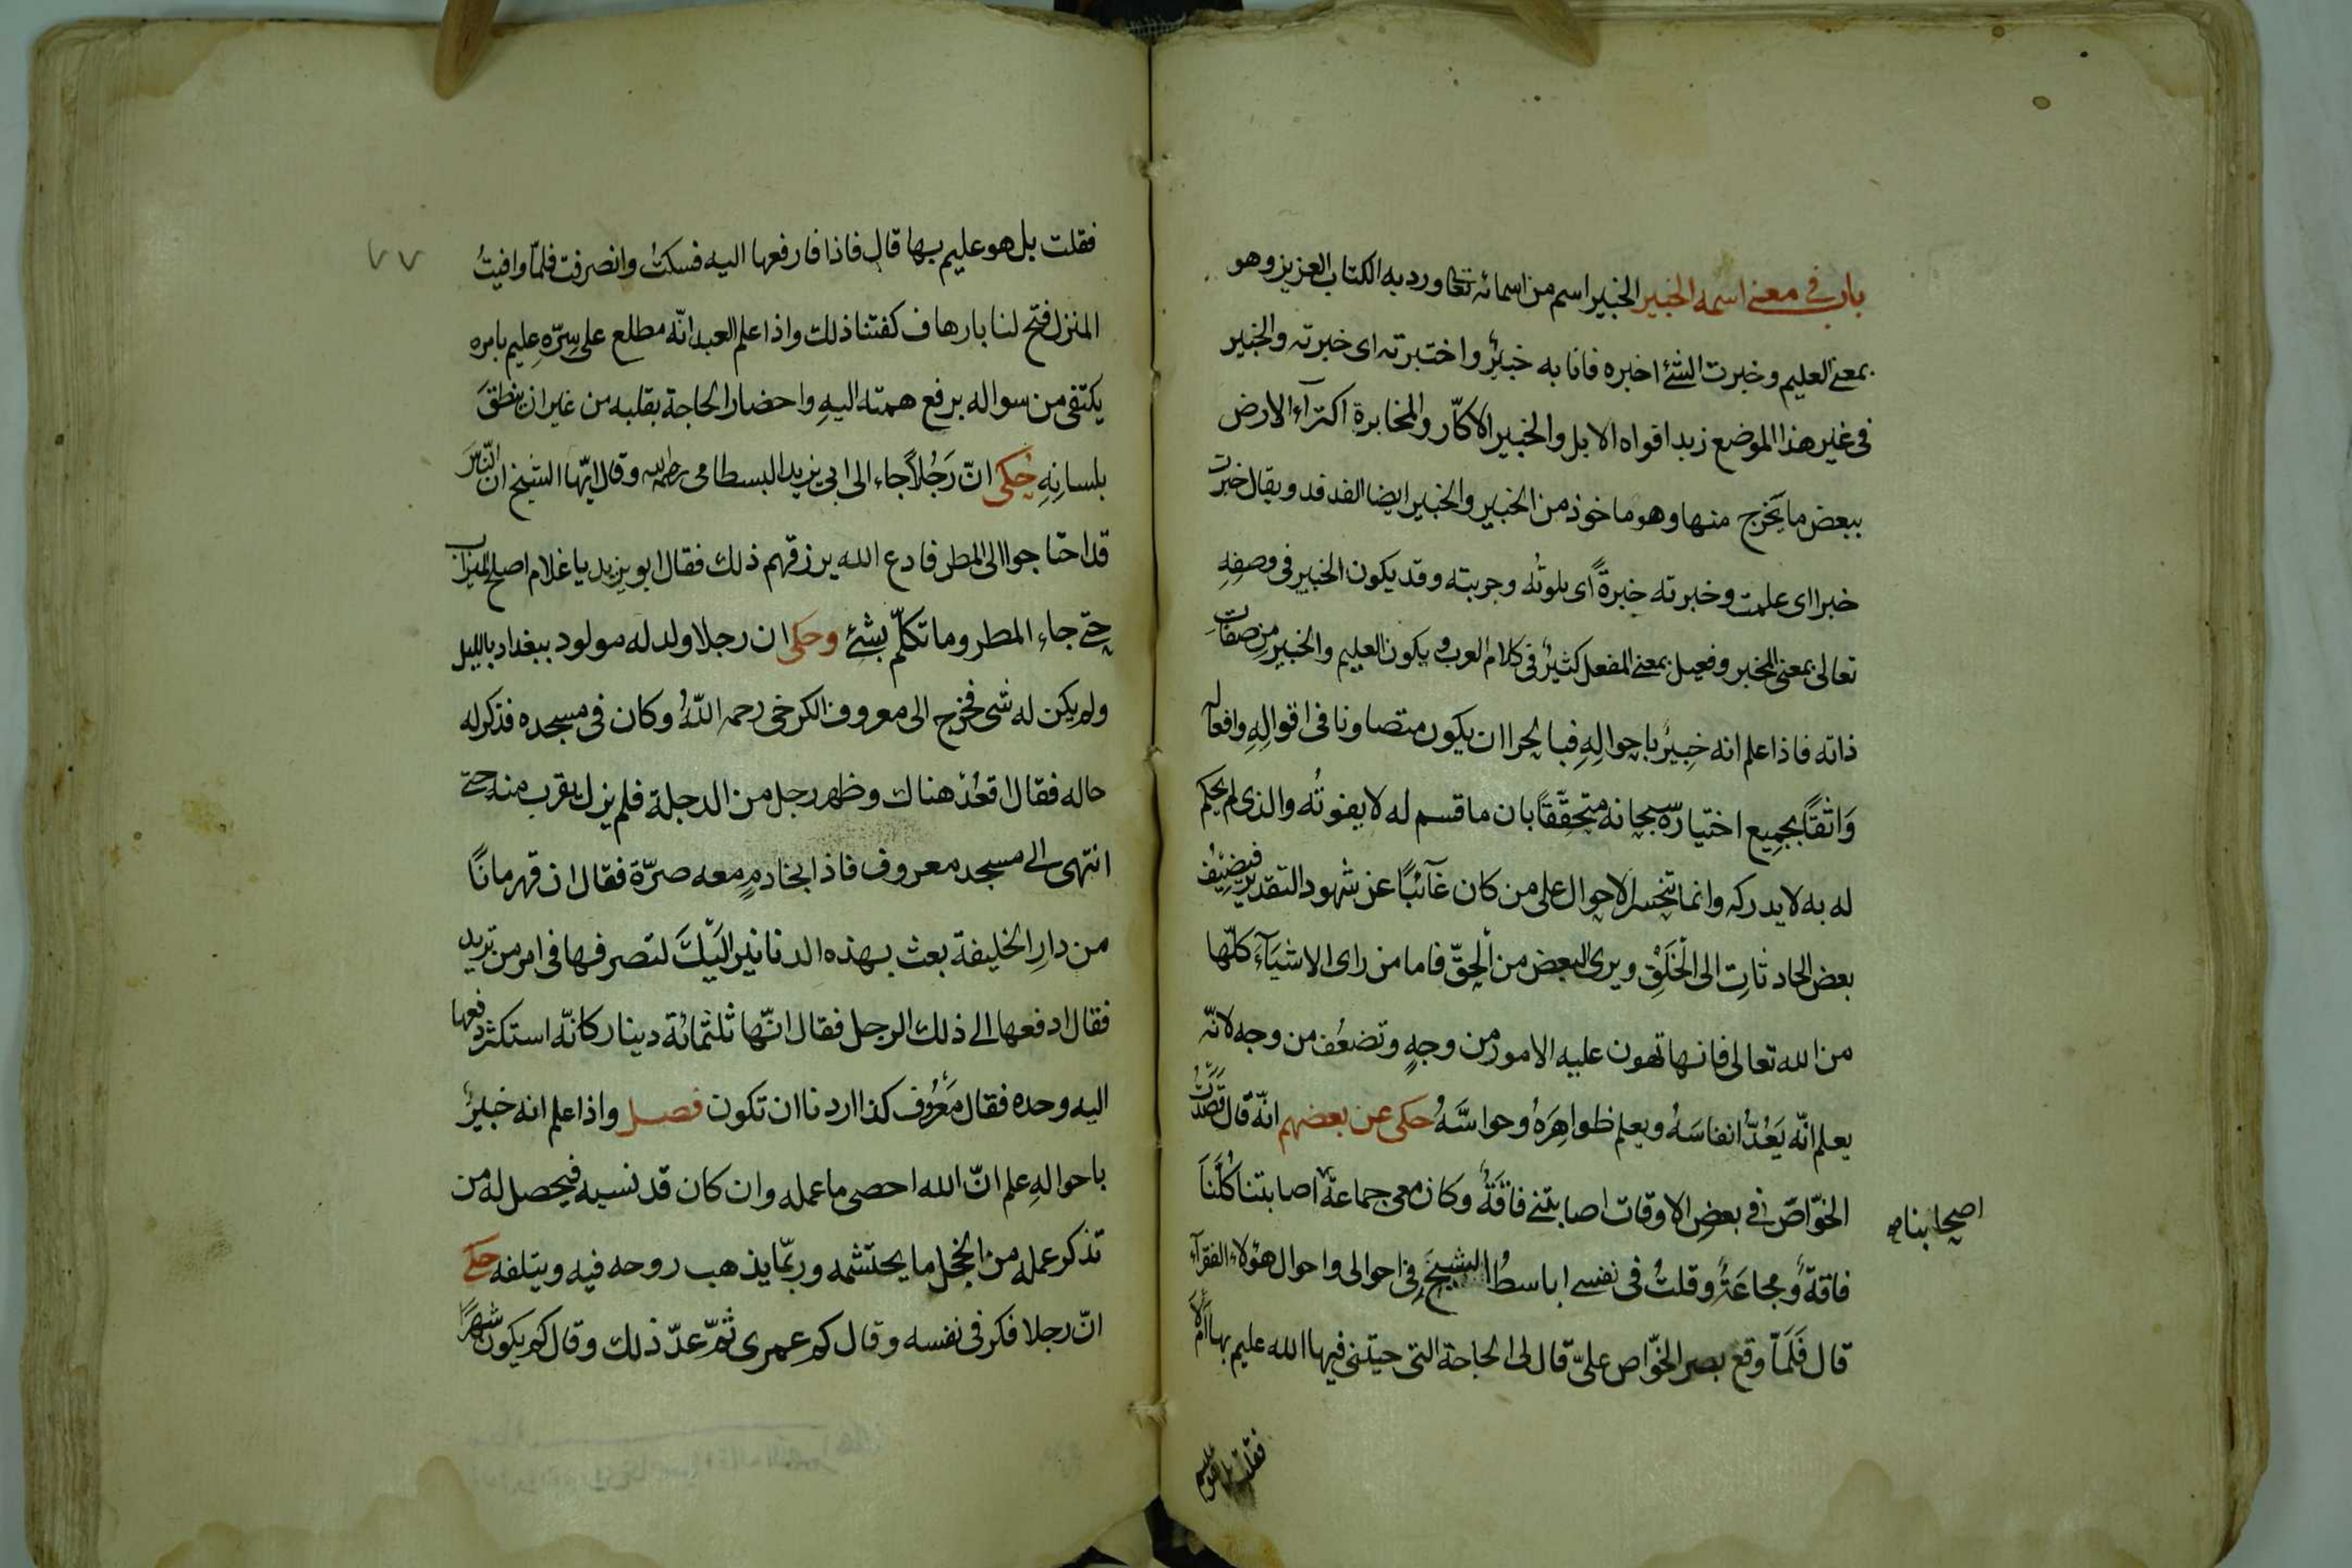 باب في معنى اسمه الخبير الخبير اسم من اسمائه تعا ورد به الكتاب العزيز وهو
بمعنى العليم وخبرت الشئ اخبره فانا به خبيرٌ واختبرته اى خبرته والخبير
فى غير هذا الموضع زبد افواه الابل والخبير الاكّار والمخابرة اكتراء الارض
ببعض ما يخرج منها وهو ماخوذ من الخبير والخبير ايضا الفدفد ويقال خبرت
خبرا اى علمت وخبرته خبرةً اى بلوتُه وجربته وقد يكون الخبير فى وصفِهِ
تعالى بمعنى المخبر وفعيل بمعنى المفعل كثيرٌ فى كلام العرب ويكون العليم والخبير من صفات
ذاته فاذا علم انه خبيرٌ باحوالِهِ فبالحرا ان يكون متصاونا فى اقوالِهِ وافعاله
وَاثقًا بجميع اختياره سبحانه متحقّقًا بان ما قسم له لا يفوتُه والذى لم يحكم
له به لا يدركه وانما تنحسر الاحوال على من كان غآئبًا عن شهود التقدير فيضيف
بعض الحادثاتِ الى الخَلْقِ ويرى البعض من الحقّ فاما من راى الاشيَآءَ كلّها
من الله تعالى فانها تهون عليه الامور من وجهٍ وتضعُف من وجه لانّه
يعلم انّه يَعُدُّ انفاسَهُ ويعلم ظواهِرَهُ وحواسَّهُ حكى عن بعضهم انّه قال قصَدْتُ
الخوّاصَ فى بعضِ الاوقات اصابتنى فاقَةٌ وكان معى جماعةٌ اصابتنا كُلَّنَا
اصحابنا صح
فاقةٌ ومجاعَةٌ وقلتُ فى نفسى اباسطُ الشيخَ فى احوالى واحوال هؤلاء الفقرآء
قال فَلَمّا وقع بصر الخوّاص علىّ قال لى الحاجة التى جيتنى فيها الله عليم بها اَمْ لا
فقلت بل هو عليم
٧٧
فقلت بل هو عليم بها قال فاذا فارفعها اليه فسكتُ وانصرفت فلمّا وافيتُ
المنزل فتح لنا بارهاف كفتنا ذلك واذا علم العبد انّه مطلع على سِرّهِ عليم بامره
يكتفى من سواله برفع همته اليهِ واحضار الحاجة بقلبه من غير ان ينطقَ
بلسانِهِ حُكى انّ رَجُلاً جاء الى ابى يزيد البسطامى رحمه الله وقال ايّها الشيخ ان النّاسَ
قد احتاجوا الى المطر فادع الله يرزقهم ذلك فقال ابو يزيد يا غلام اصلح الميزاب
حتى جاء المطر وما تكلّم بشئ وحكى ان رجلا ولد له مولود ببغداد بالليل
ولم يكن له شى فخرج الى معروف الكرخى رحمه اللّهُ وكان فى مسجده فذكر له
حاله فقال اقعُدْ هناك وظهر رجل من الدجلة فلم يزل يقرب منه حتى
انتهى الى مسجد معروف فاذا بخادمٍ معه صرّة فقال ان قهرمانًا
من دارِ الخليفة بعث بهذه الدنانير اليَكَ لتصرفها فى امر من تريد
فقال ادفعها الى ذلك الرجل فقال انّها ثلثمائة دينار كانّه استكثر دفعها
اليه وحده فقال مَعْرُوف كذا اردنا ان تكون فصل واذا علم انه خبيرٌ
باحوالهِ علم انّ الله احصى ما عمله وان كان قد نسيه فيحصل له من
تذكر عمله من الخجل ما يحتشمه وربّما يذهب روحه فيه ويتلفه حكى
انّ رجلا فكر فى نفسه وقال كم عمرى ثمّ عدّ ذلك وقال كم يكون شهرًا